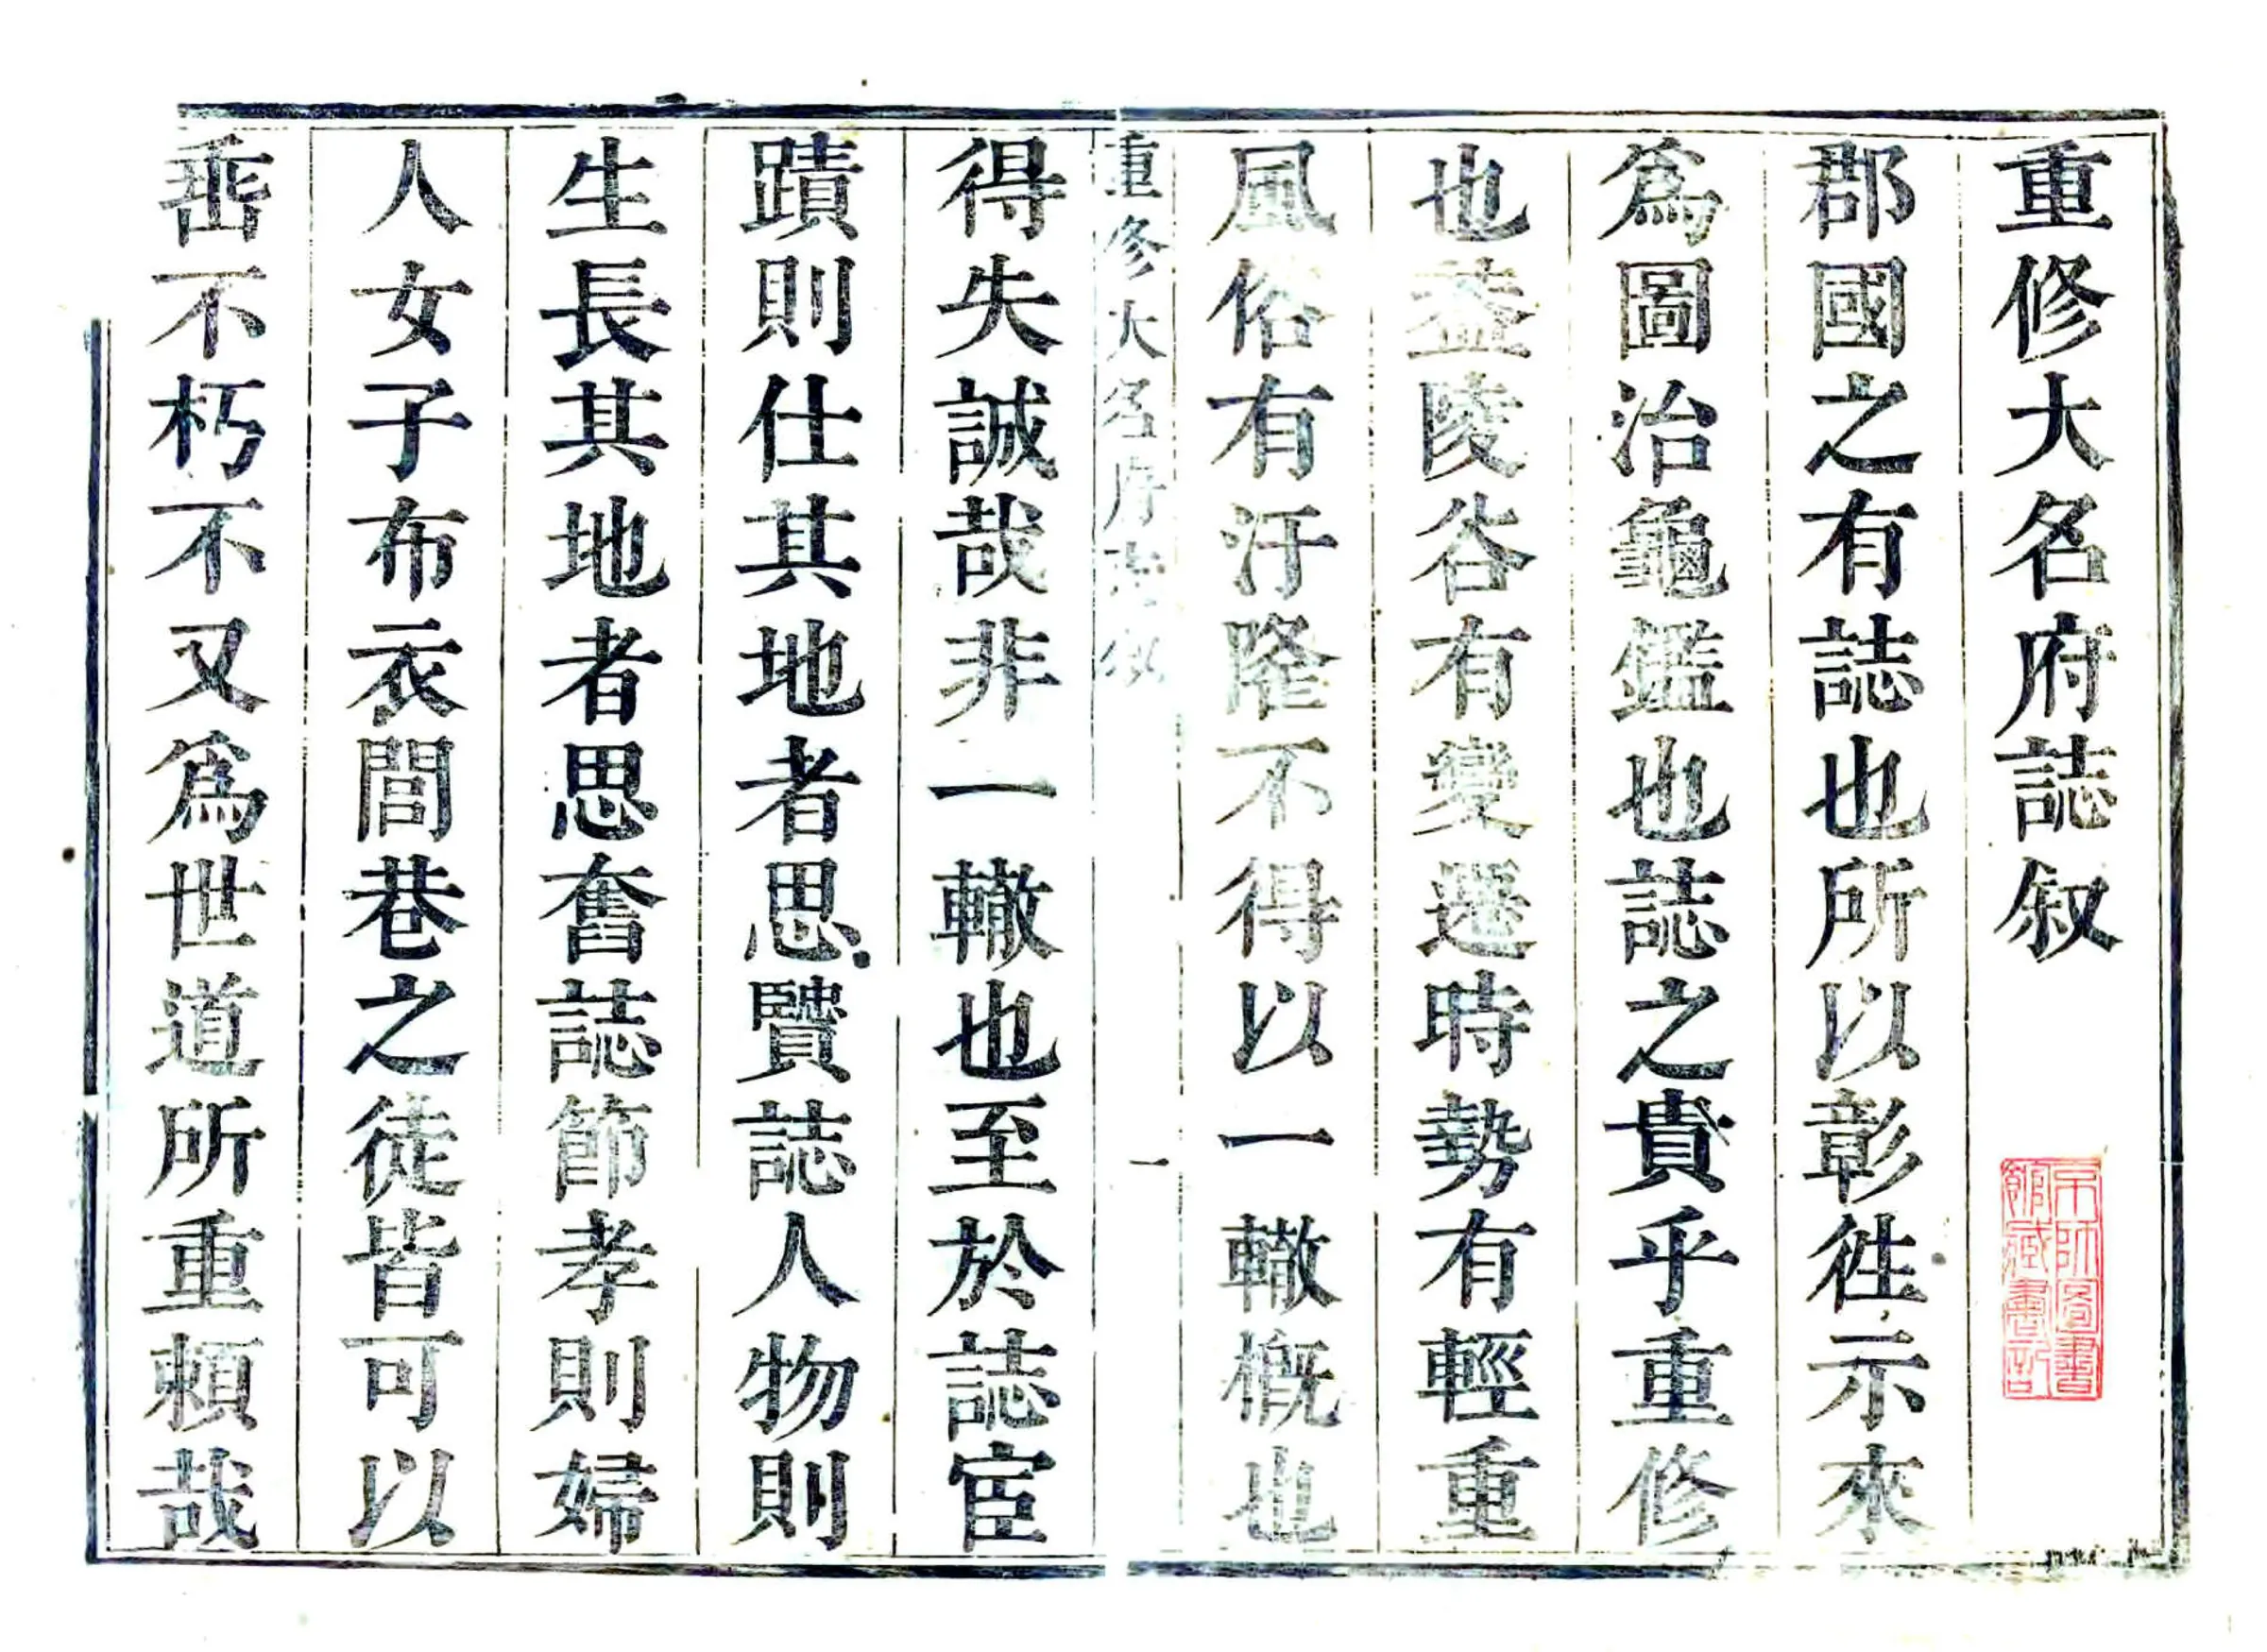 重修大名府誌叙
郡國之有誌也所以彰徃示來
爲圖治龜鑑也誌之貴乎重修
也葢陵谷有變遷時勢有輕重
風俗有汙隆不得以一轍槪也
重修大名府志叙
一
得失誠哉非一轍也至於誌宦
蹟則仕其地者思賢誌人物則
生長其地者思奮誌節孝則婦
人女子布衣閭巷之徒皆可以
垂不朽不又爲世道所重賴哉
京師圖書
館藏書記